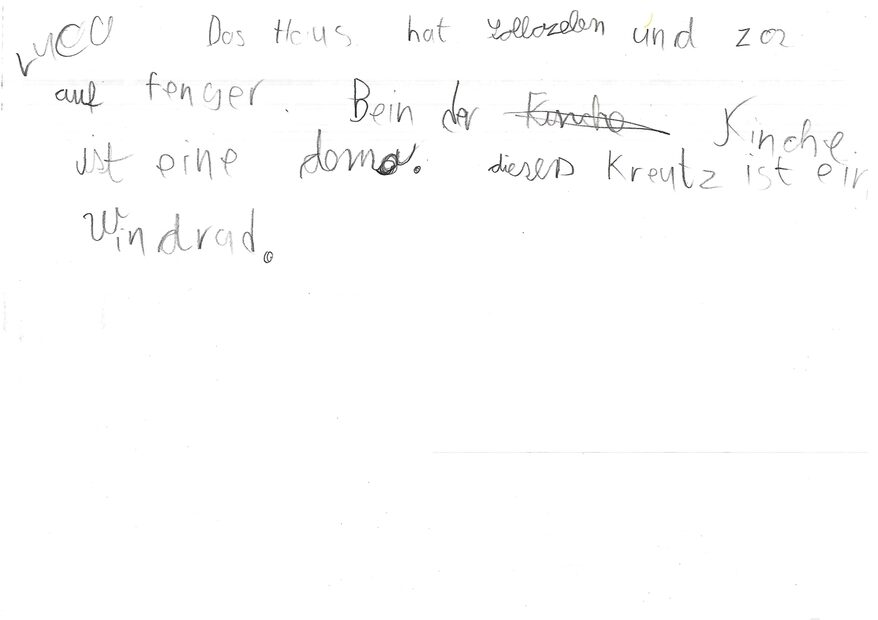 Luca Das Haus hat sollozelen und zoz
auf fenger. Bein der Kinche.
ist eine doma. dieses Kreutz ist ein
Windrad.